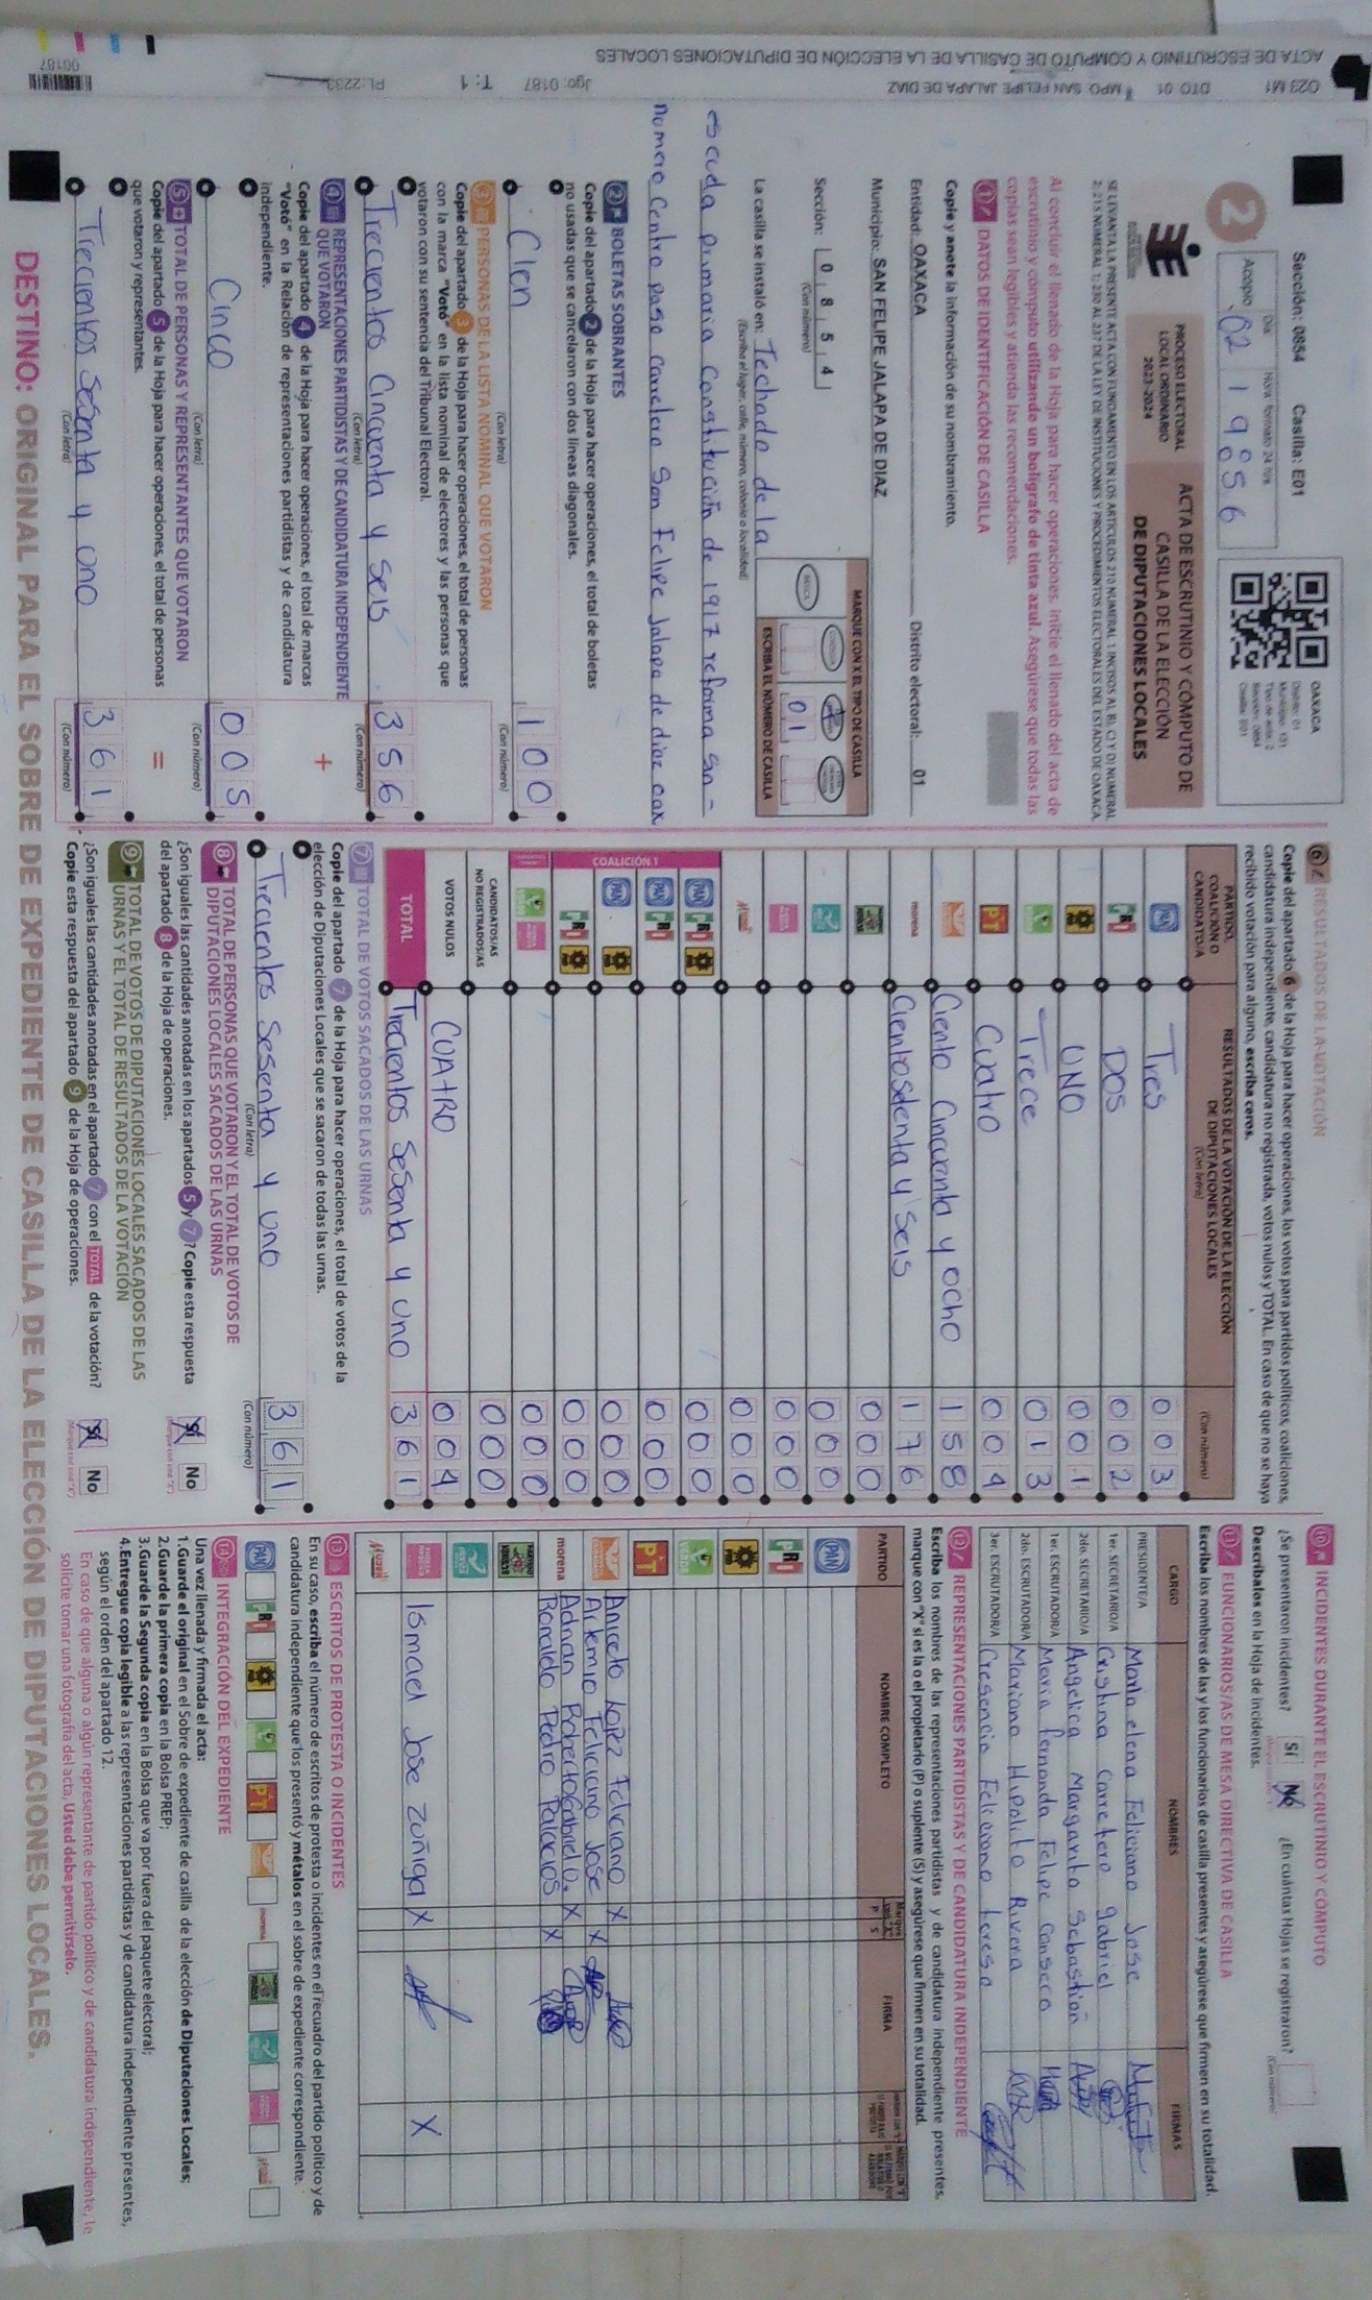 ACTA DE ESCRUTINIO Y CÓMPUTO DE CASILLA DE LA ELECCIÓN DE DIPUTACIONES LOCALES
023 M1 DTO 01 MPO SAN FELIPE JALAPA DE DIAZ Jgo: 0187 T: 1 PL: 2233
00187
Sección: 0854 Casilla: E01
2
Acopio
Día
Hora formato 24 hrs
02 19:056
OAXACA
Distrito: 01
PROCESO ELECTORAL
LOCAL ORDINARIO
2023-2024
ACTA DE ESCRUTINIO Y CÓMPUTO DE
CASILLA DE LA ELECCIÓN
DE DIPUTACIONES LOCALES
Al concluir el llenado de la Hoja para hacer operaciones, inicie el llenado del acta de
escrutinio y cómputo utilizando un bolígrafo de tinta azul. Asegúrese que todas las
copias sean legibles y atienda las recomendaciones.
1 DATOS DE IDENTIFICACIÓN DE CASILLA
Copie y anote la información de su nombramiento.
Entidad: OAXACA Distrito electoral: 01
Municipio: SAN FELIPE JALAPA DE DIAZ
Sección: 0 8 5 4
(Con número)
MARQUE CON X EL TIPO DE CASILLA
01
ESCRIBA EL NÚMERO DE CASILLA
La casilla se instaló en: Techado de la
(Escriba el lugar, calle, número, colonia o localidad)
escuda primaria Constitución de 1917 reforma Sn-
numero Centro paso carretera San Felipe Jalapa de diaz oax
2 BOLETAS SOBRANTES
Copie del apartado 2 de la Hoja para hacer operaciones, el total de boletas
no usadas que se cancelaron con dos líneas diagonales.
Cien 100
(Con letra) (Con número)
3 PERSONAS DE LA LISTA NOMINAL QUE VOTARON
Copie del apartado 3 de la Hoja para hacer operaciones, el total de personas
con la marca "Votó" en la lista nominal de electores y las personas que
votaron con su sentencia del Tribunal Electoral.
Trecientos Cincuenta y seis 356
(Con letra) (Con número)
4 REPRESENTACIONES PARTIDISTAS Y DE CANDIDATURA INDEPENDIENTE
QUE VOTARON
Copie del apartado 4 de la Hoja para hacer operaciones, el total de marcas
"Votó" en la Relación de representaciones partidistas y de candidatura
independiente.
+
Cinco 005
(Con letra) (Con número)
5 TOTAL DE PERSONAS Y REPRESENTANTES QUE VOTARON
Copie del apartado 5 de la Hoja para hacer operaciones, el total de personas
que votaron y representantes.
=
Trecientos sesenta y uno 361
(Con letra) (Con número)
6 RESULTADOS DE LA VOTACIÓN
Copie del apartado 6 de la Hoja para hacer operaciones, los votos para partidos políticos, coaliciones,
candidatura independiente, candidatura no registrada, votos nulos y TOTAL. En caso de que no se haya
recibido votación para alguno, escriba ceros.
PARTIDO, COALICIÓN O CANDIDATO/A
RESULTADOS DE LA VOTACIÓN DE LA ELECCIÓN DE DIPUTACIONES LOCALES
(Con letra) (Con número)
PAN Tres 003
PRI DOS 002
PRD UNO 001
VERDE Trece 013
PT Cuatro 004
Ciento Cincuenta y ocho 158
morena Cientosetenta y Seis 176
000
000
000
000
COALICIÓN 1
PAN PRI PRD 000
PAN PRI 000
PAN PRD 000
PRI PRD 000
000
CANDIDATOS/AS NO REGISTRADOS/AS 000
VOTOS NULOS CUAtRO 004
TOTAL Trecientos Sesenta y uno 361
7 TOTAL DE VOTOS SACADOS DE LAS URNAS
Copie del apartado 7 de la Hoja para hacer operaciones, el total de votos de la
elección de Diputaciones Locales que se sacaron de todas las urnas.
Trecientos Sessenta y uno 361
(Con letra) (Con número)
8 TOTAL DE PERSONAS QUE VOTARON Y EL TOTAL DE VOTOS DE
DIPUTACIONES LOCALES SACADOS DE LAS URNAS
¿Son iguales las cantidades anotadas en los apartados 5 y 7? Copie esta respuesta
del apartado 8 de la Hoja de operaciones.
Sí No
9 TOTAL DE VOTOS DE DIPUTACIONES LOCALES SACADOS DE LAS
URNAS Y EL TOTAL DE RESULTADOS DE LA VOTACIÓN
¿Son iguales las cantidades anotadas en el apartado 7 con el TOTAL de la votación?
Copie esta respuesta del apartado 9 de la Hoja de operaciones.
Sí No
10 INCIDENTES DURANTE EL ESCRUTINIO Y CÓMPUTO
¿Se presentaron incidentes? Sí No ¿En cuántas Hojas se registraron?
Descríbalos en la Hoja de incidentes.
11 FUNCIONARIOS/AS DE MESA DIRECTIVA DE CASILLA
Escriba los nombres de las y los funcionarios de casilla presentes y asegúrese que firmen en su totalidad.
CARGO NOMBRES FIRMAS
PRESIDENTE/A Maria elena Feliciano Jose
1er. SECRETARIO/A Cristina Carretero gabriel
2do. SECRETARIO/A Angelica Margarito Sebastian
1er. ESCRUTADOR/A Maria Fernanda Felipe Conseco
2do. ESCRUTADOR/A Mariano Hupolito Rivera
3er. ESCRUTADOR/A Cresencio Feliciano teresa
12 REPRESENTACIONES PARTIDISTAS Y DE CANDIDATURA INDEPENDIENTE
Escriba los nombres de las representaciones partidistas y de candidatura independiente presentes,
marque con "X" si es la o el propietario (P) o suplente (S) y asegúrese que firmen en su totalidad.
PARTIDO NOMBRE COMPLETO P S FIRMA
PAN
PRI
PRD
VERDE
PT
Aniceto Lopez Feliciano X
Artemio Feliciano Jose X
morena Adrian Bohechogabrielo. X
Romaldo Pedro Palacios X
Ismael Jose zuñiga X X
13 ESCRITOS DE PROTESTA O INCIDENTES
En su caso, escriba el número de escritos de protesta o incidentes en el recuadro del partido político y de
candidatura independiente que los presentó y métalos en el sobre de expediente correspondiente.
PAN PRI PRD VERDE PT morena
14 INTEGRACIÓN DEL EXPEDIENTE
Una vez llenada y firmada el acta:
1. Guarde el original en el Sobre de expediente de casilla de la elección de Diputaciones Locales;
2. Guarde la primera copia en la Bolsa PREP;
3. Guarde la Segunda copia en la Bolsa que va por fuera del paquete electoral;
4. Entregue copia legible a las representaciones partidistas y de candidatura independiente presentes,
según el orden del apartado 12.
En caso de que alguna o algún representante de partido político y de candidatura independiente, le
solicite tomar una fotografía del acta, Usted debe permitírselo.
DESTINO: ORIGINAL PARA EL SOBRE DE EXPEDIENTE DE CASILLA DE LA ELECCIÓN DE DIPUTACIONES LOCALES.